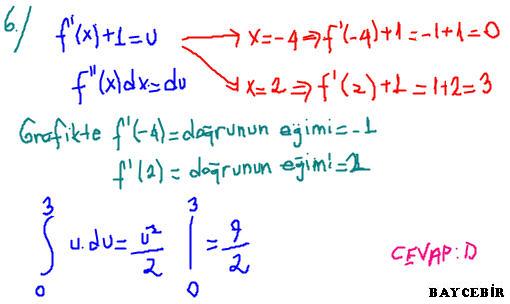 6./
f'(x)+1=u → x=-4 ⇒ f'(-4)+1=-1+1=0
f''(x)dx=du → x=2 ⇒ f'(2)+1=1+2=3
Grafikte f'(-4)=doğrunun eğimi=-1
f'(2)=doğrunun eğimi=2
∫₀³ u.du= u²/2 |₀³ = 9/2
CEVAP:D
BAYCEBİR